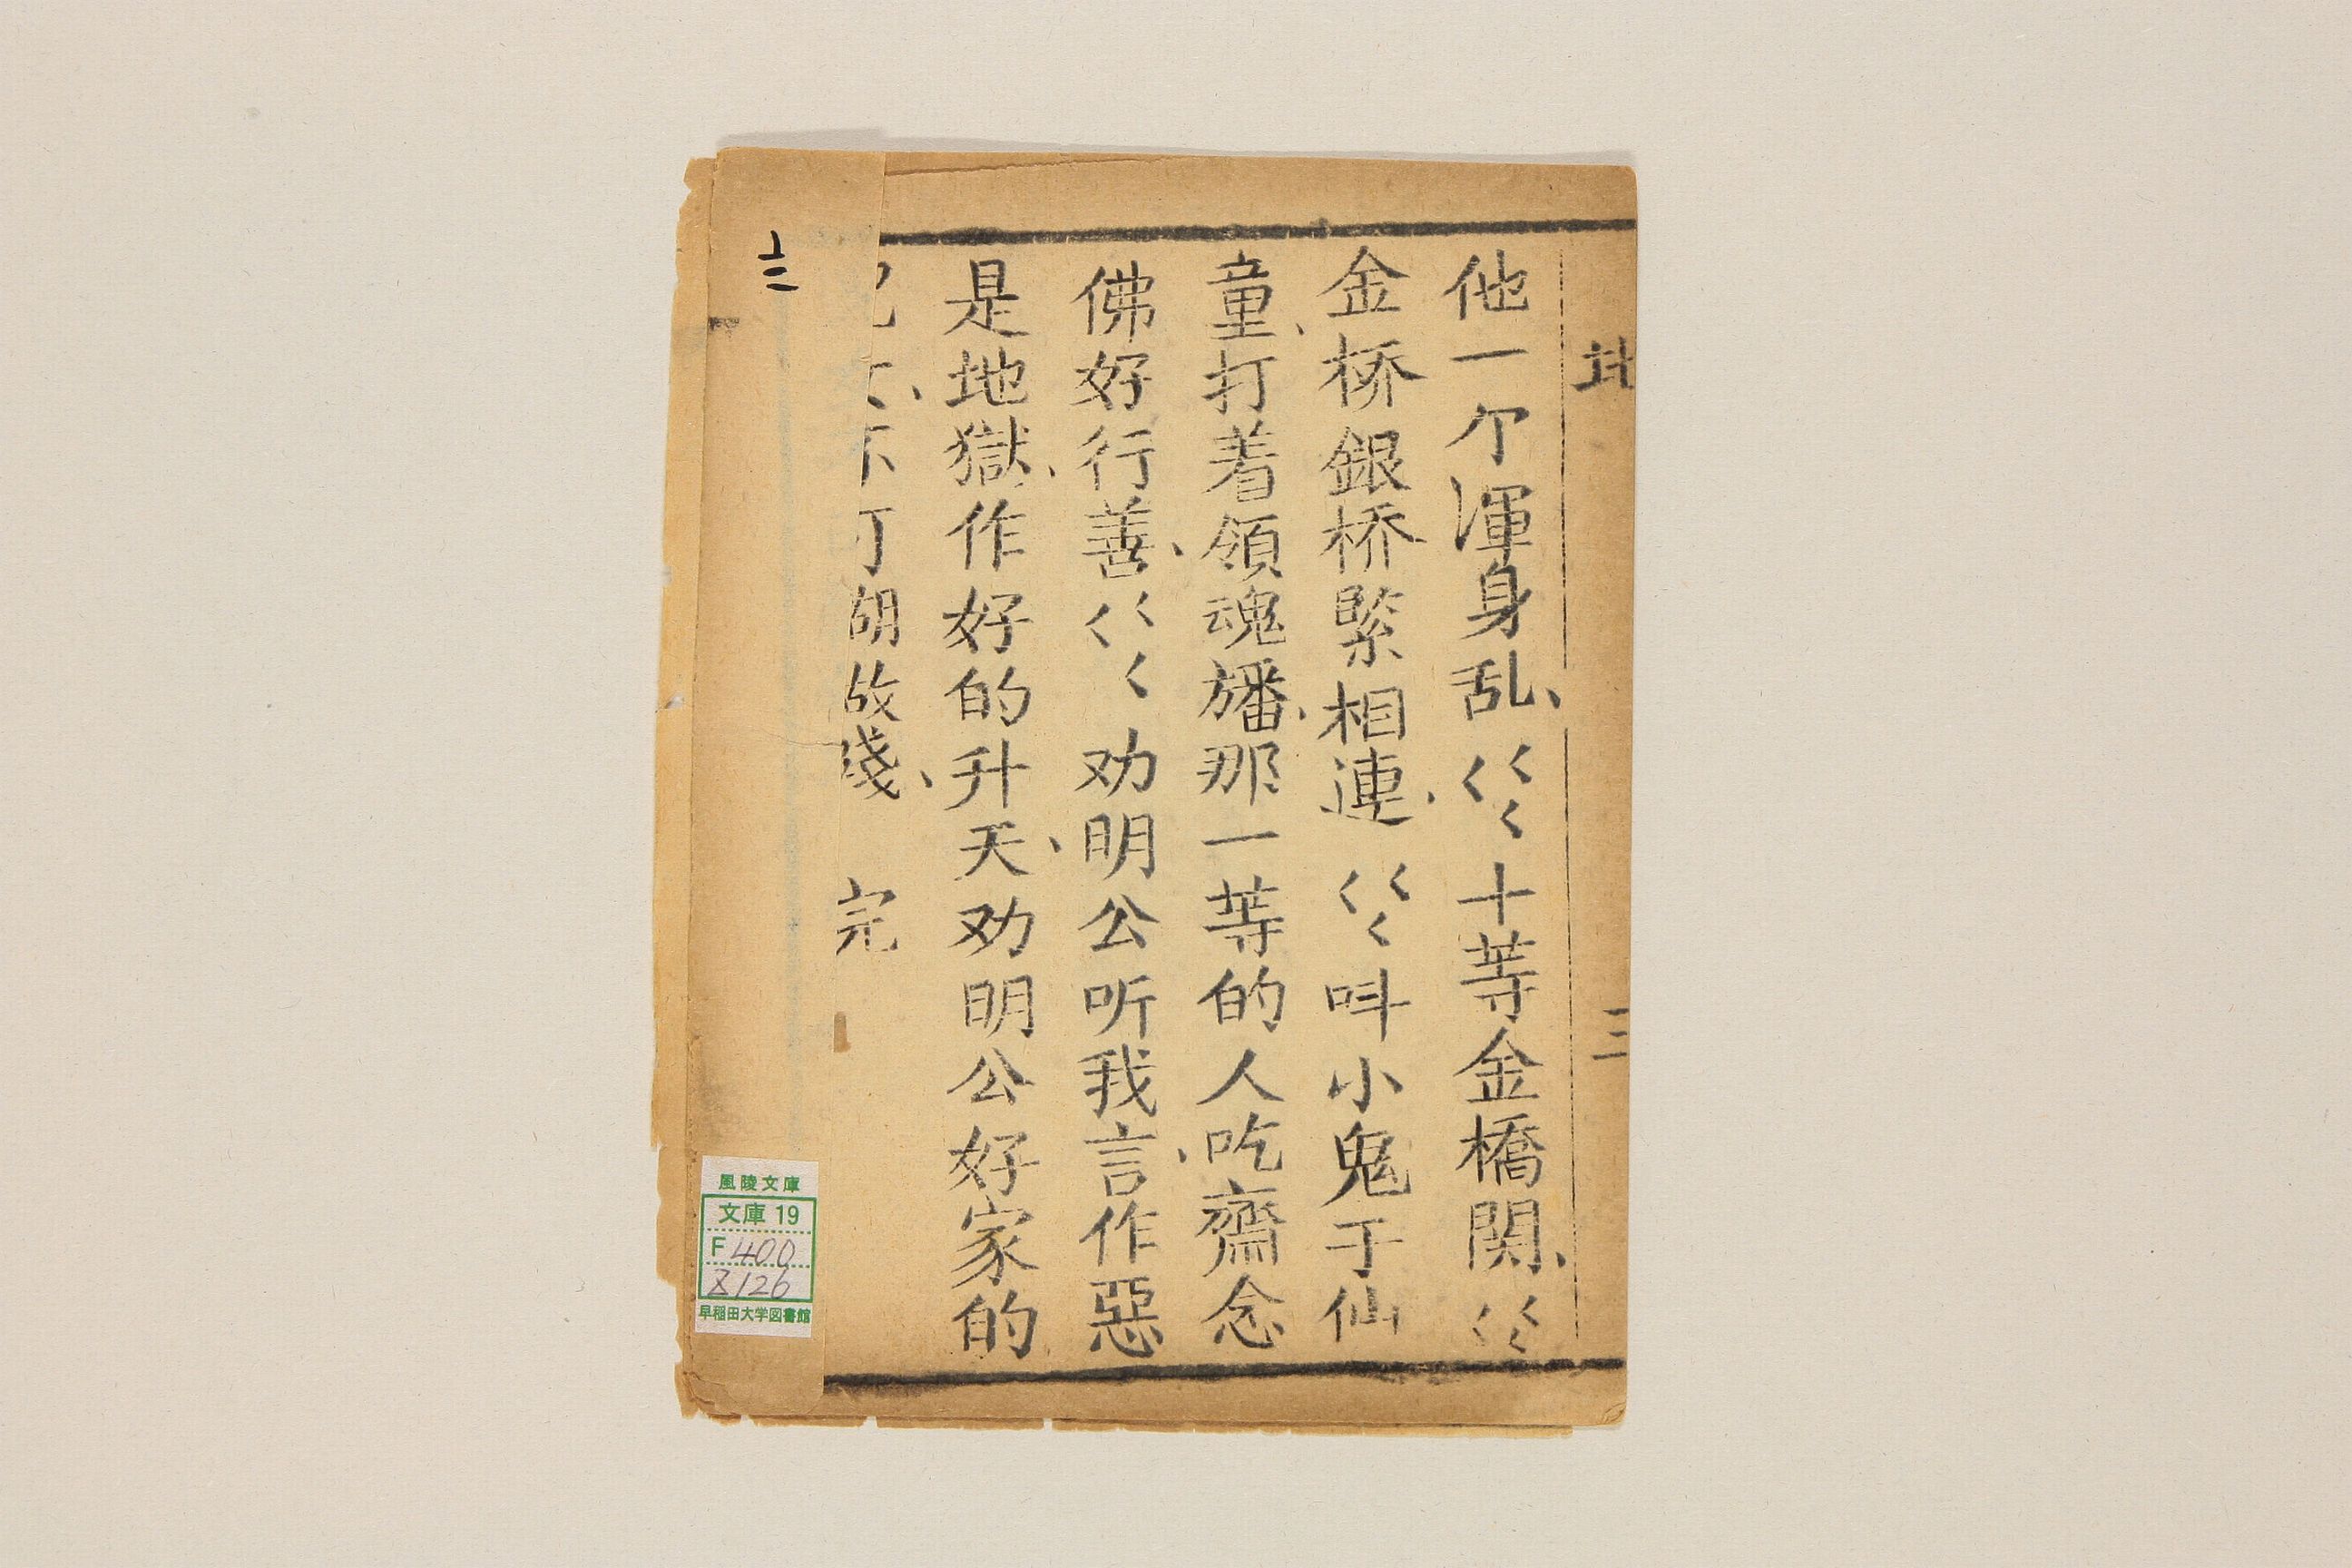 他一个渾身乱、〱〱〱十等金橋関、〱〱〱
金桥銀桥緊相連、〱〱〱呌小鬼于仙
童、打着領魂旙、那一等的人吃齋念
佛好行善、〱〱〱劝明公听我言、作惡
是地獄、作好的升天、劝明公好家的
胡故殘、完
三
風陵文庫
文庫 19
F 400
Z 126
早稲田大学図書館